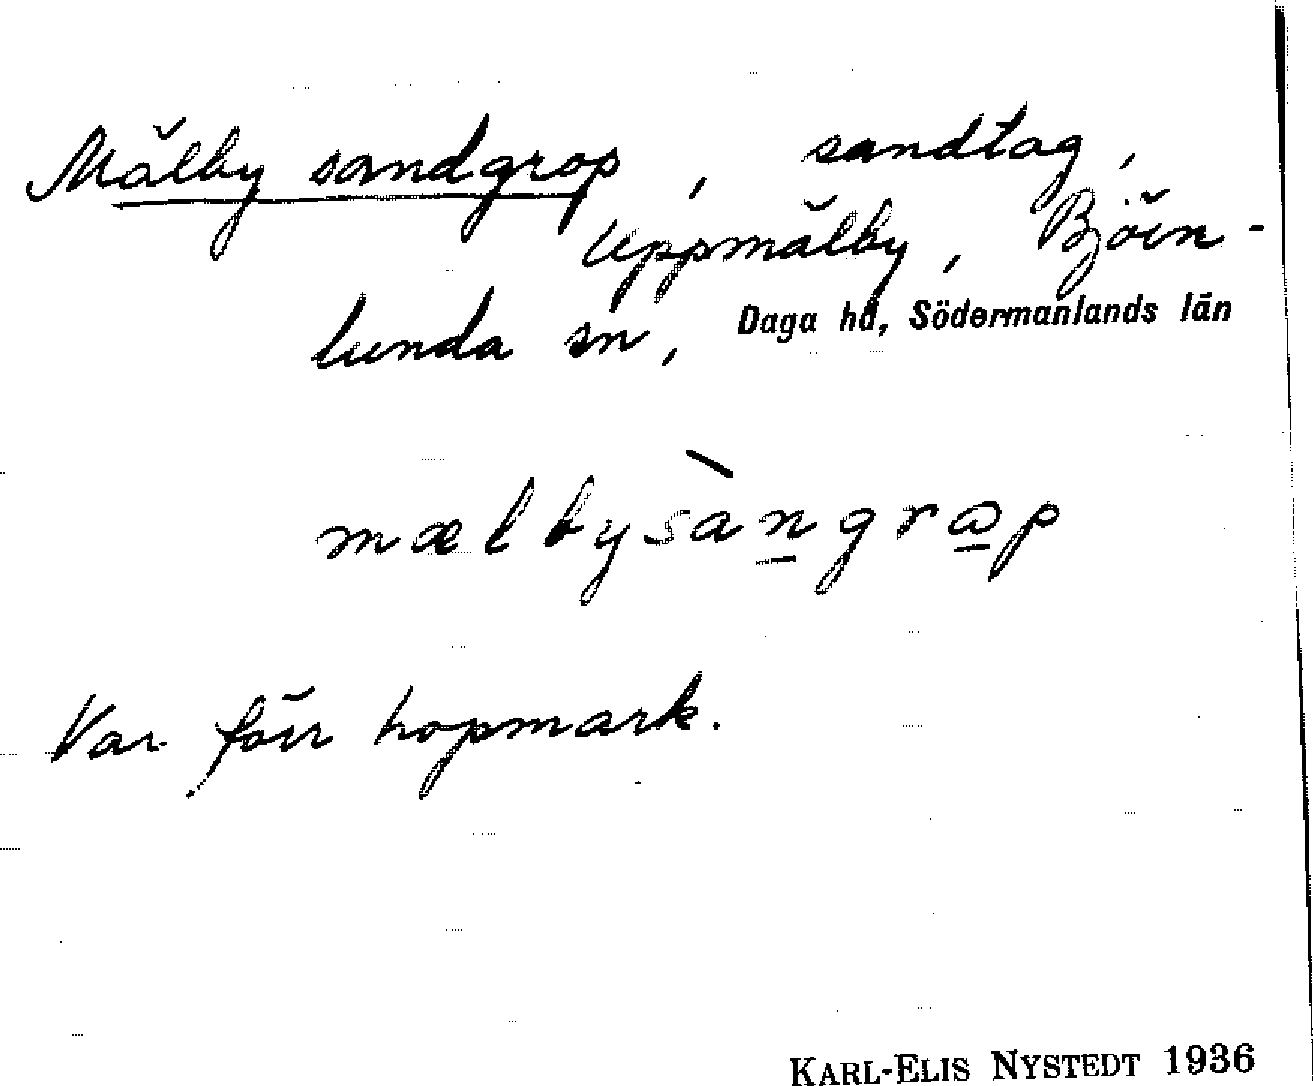 Mälby sandgrop, sandtag,
Uppmälby, Björn-
lunda sn, Daga hd, Södermanlands län
mælbysàngrap
Var förr hopmark.
KARL-ELIS NYSTEDT 1936